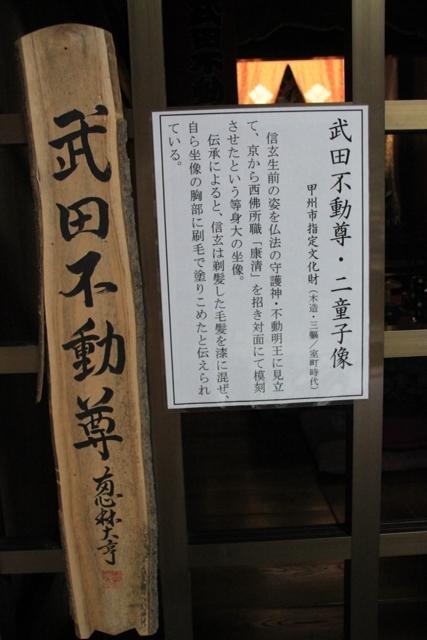 武田不動尊・二童子像
甲州市指定文化財（木造・三軀／室町時代）
信玄生前の姿を仏法の守護神・不動明王に見立
て、京から西佛所職「康清」を招き対面にて模刻
させたという等身大の坐像。
伝承によると、信玄は剃髪した毛髪を漆に混ぜ、
自ら坐像の胸部に刷毛で塗りこめたと伝えられ
ている。
武田不動尊
恵林大亨